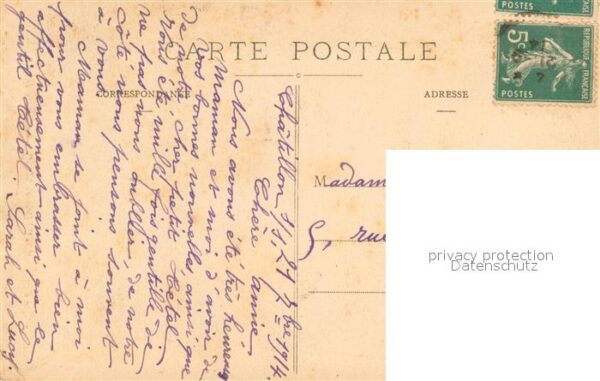 CARTE POSTALE
CORRESPONDANCE
ADRESSE
5c
POSTES
RÉPUBLIQUE FRANÇAISE
POSTES
Châtillon s/s, 27 7bre 1914.
Chère amie,
Nous avons été très heureuses
Maman et moi d'avoir de
vos bonnes nouvelles ainsi que
de votre cher petit Tétel.
Vous êtes mille fois gentille de
ne pas nous oublier de notre
côté nous pensons souvent
à vous.
Maman se joint à moi
pour vous embrasser bien
affectueusement ainsi que le
gentil Tétel. Sarah et Lucy.
Madam
5, rue
privacy protection
Datenschutz